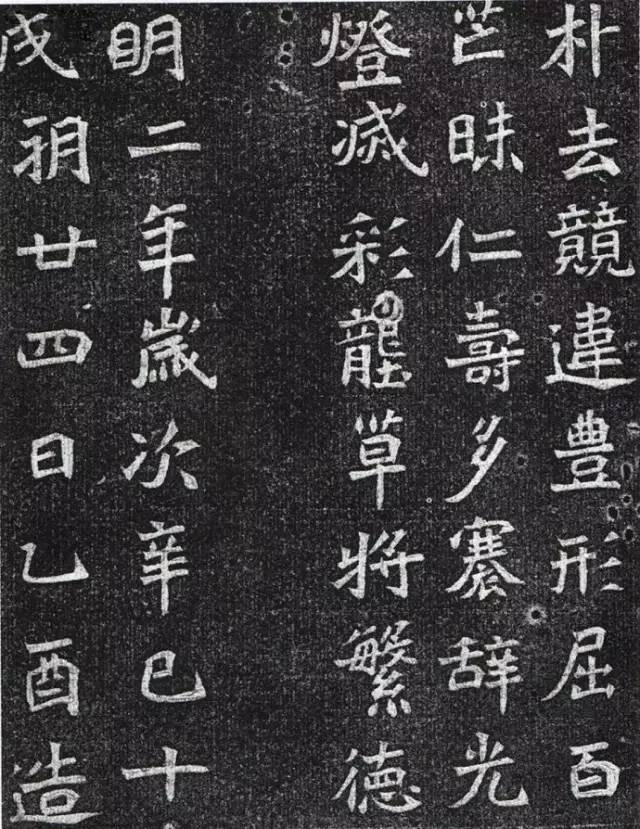 朴去競違豊形屈百
芒昧仁壽多褰辞光
燈滅彩壟草將繁德
明二年歲次辛巳十
戌朔廿四日乙酉造